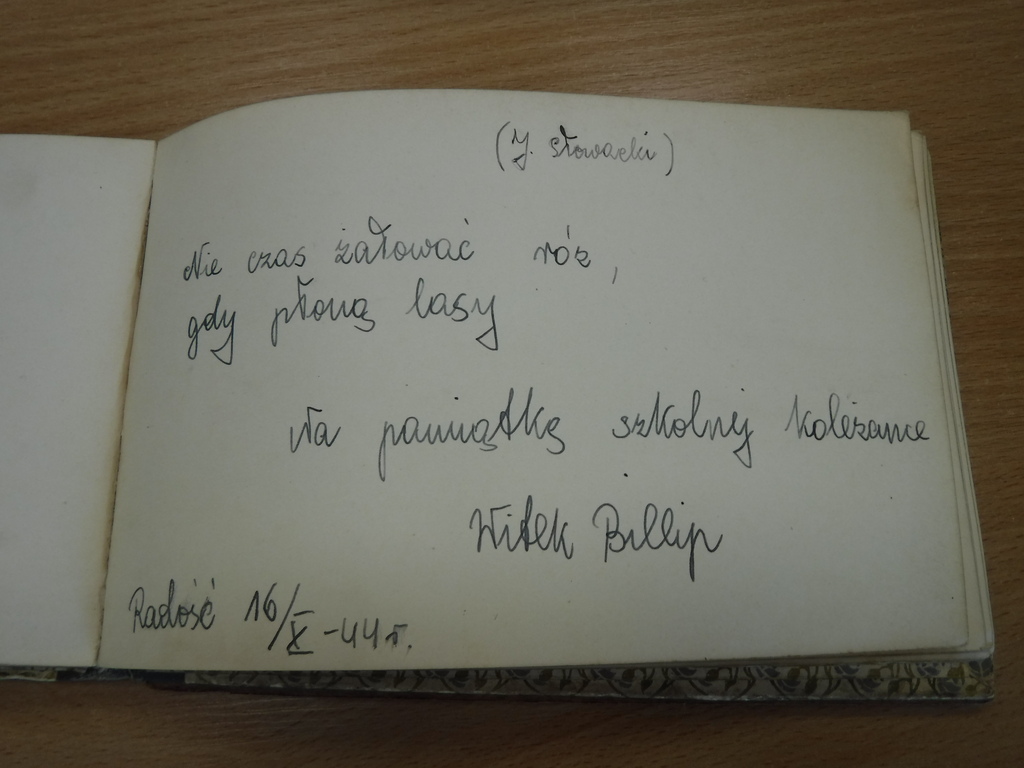 (J. Słowacki)
Nie czas żałować róż,
gdy płoną lasy
Na pamiątkę szkolnej koleżance
Witek Billip
Radość 16/X - 44 r.